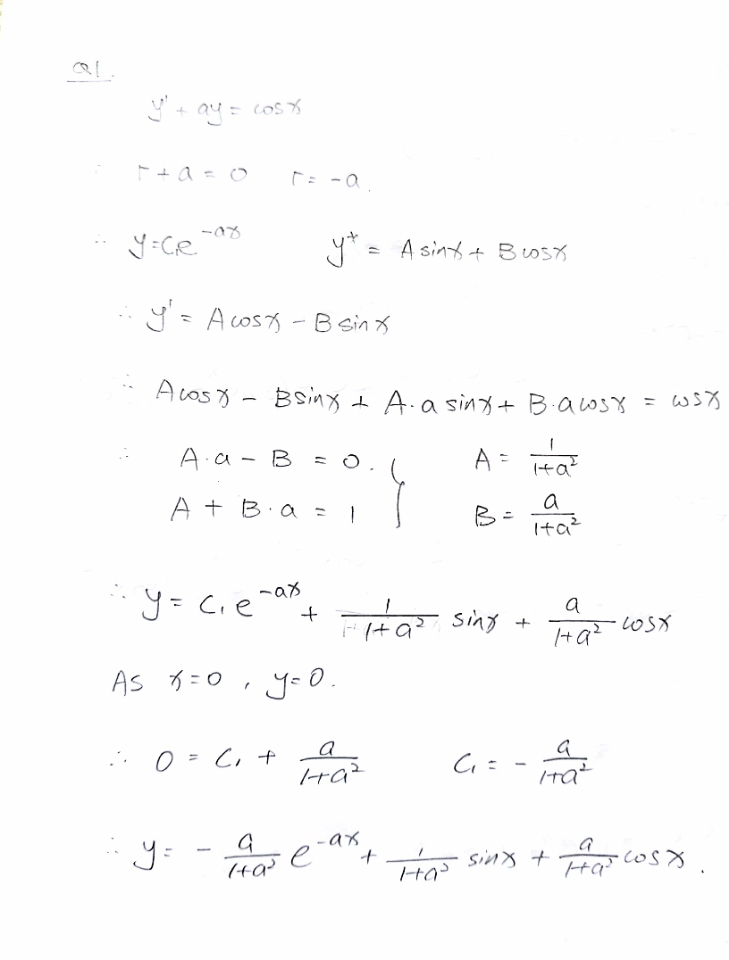 Q1.
y' + ay = cosx
∴ r + a = 0 r = -a.
∴ y = Ce^{-ax} y* = A sinx + B cosx
∴ y' = A cosx - B sinx
∴ A cosx - B sinx + A·a sinx + B·a cosx = cosx
∴ A·a - B = 0. } A = 1/(1+a²)
A + B·a = 1 } B = a/(1+a²)
∴ y = C₁e^{-ax} + 1/(1+a²) sinx + a/(1+a²) cosx
As x=0, y=0.
∴ 0 = C₁ + a/(1+a²) C₁ = - a/(1+a²)
∴ y = - a/(1+a²) e^{-ax} + 1/(1+a²) sinx + a/(1+a²) cosx.